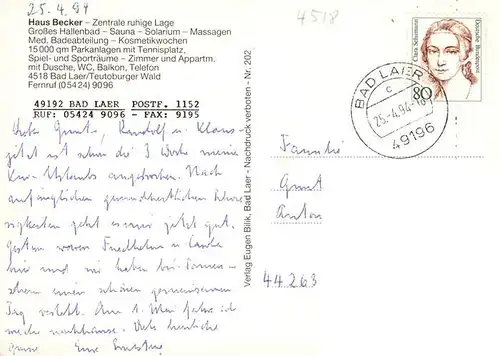 25.4.94
4518
Haus Becker – Zentrale ruhige Lage
Großes Hallenbad – Sauna – Solarium – Massagen
Med. Badeabteilung – Kosmetikwochen
15 000 qm Parkanlagen mit Tennisplatz,
Spiel- und Sporträume – Zimmer und Appartm.
mit Dusche, WC, Balkon, Telefon
4518 Bad Laer/Teutoburger Wald
Fernruf (05424) 9096
49192 BAD LAER POSTF. 1152
RUF: 05424 9096 – FAX: 9195
Liebe Rudolf u. Klaus
jetzt ist schon die 3. Woche meines
Kur-Urlaubs angebrochen. Nach
anfänglichen gesundheitlichen
geht es mir jetzt gut.
Gestern waren Friedhelm u.
hier und wir haben bei Sonnen-
schein einen schönen gemeinsamen
Tag verlebt. Am 1. Mai fahre ich
wieder nachhause. Viele herzliche
Grüße Eure
Verlag Eugen Bilik, Bad Laer - Nachdruck verboten - Nr. 202
Clara Schumann
Deutsche Bundespost
80
BAD LAER
c
25.-4.94-16
49196
Familie
Anton
44263